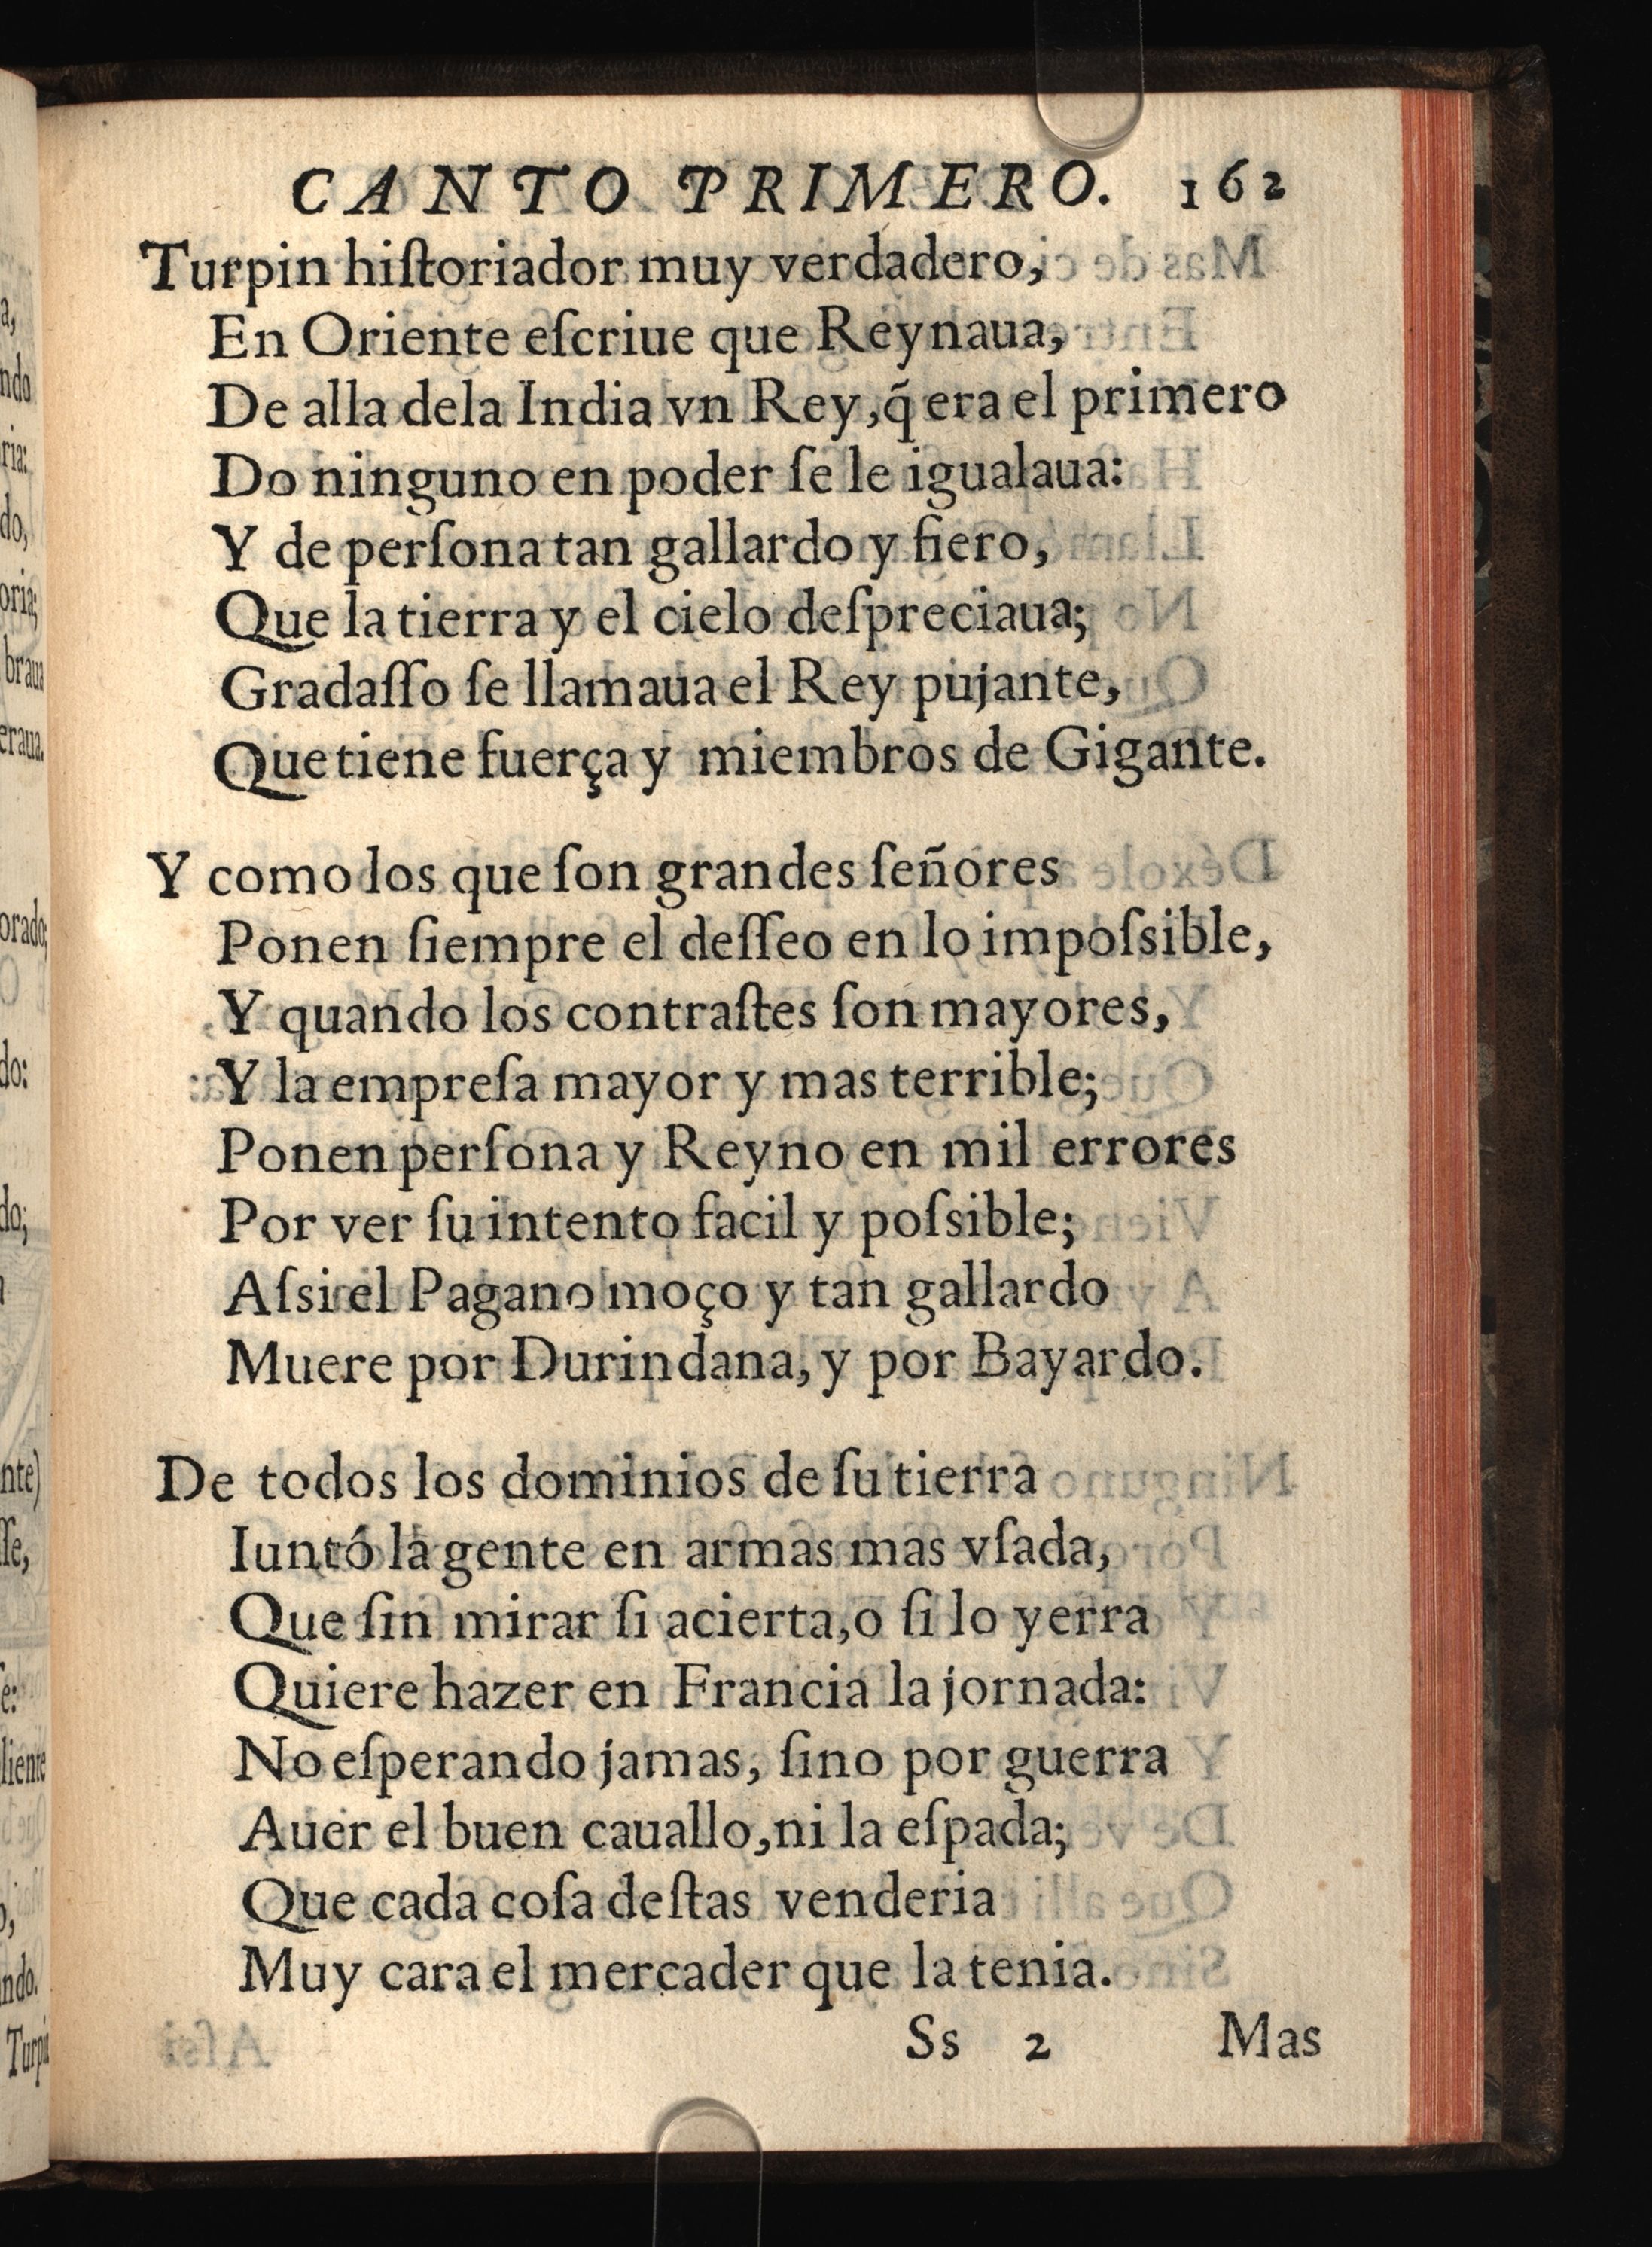 CANTO PRIMERO. 162
Turpin hiſtoriador muy verdadero,
En Oriente eſcriue que Reynaua,
De alla dela India vn Rey, q̃ era el primero
Do ninguno en poder ſe le igualaua:
Y de perſona tan gallardo y fiero,
Que la tierra y el cielo deſpreciaua;
Gradaſſo ſe llamaua el Rey pujante,
Que tiene fuerça y miembros de Gigante.
Y como los que ſon grandes ſeñores
Ponen ſiempre el deſſeo en lo impoſsible,
Y quando los contraſtes ſon mayores,
Y la empreſa mayor y mas terrible;
Ponen perſona y Reyno en mil errores
Por ver ſu intento facil y poſsible;
Aſsi el Pagano moço y tan gallardo
Muere por Durindana, y por Bayardo.
De todos los dominios de ſu tierra
Iuntó la gente en armas mas vſada,
Que ſin mirar ſi acierta, o ſi lo yerra
Quiere hazer en Francia la jornada:
No eſperando jamas, ſino por guerra
Auer el buen cauallo, ni la eſpada;
Que cada coſa deſtas venderia
Muy cara el mercader que la tenia.
Ss 2 Mas